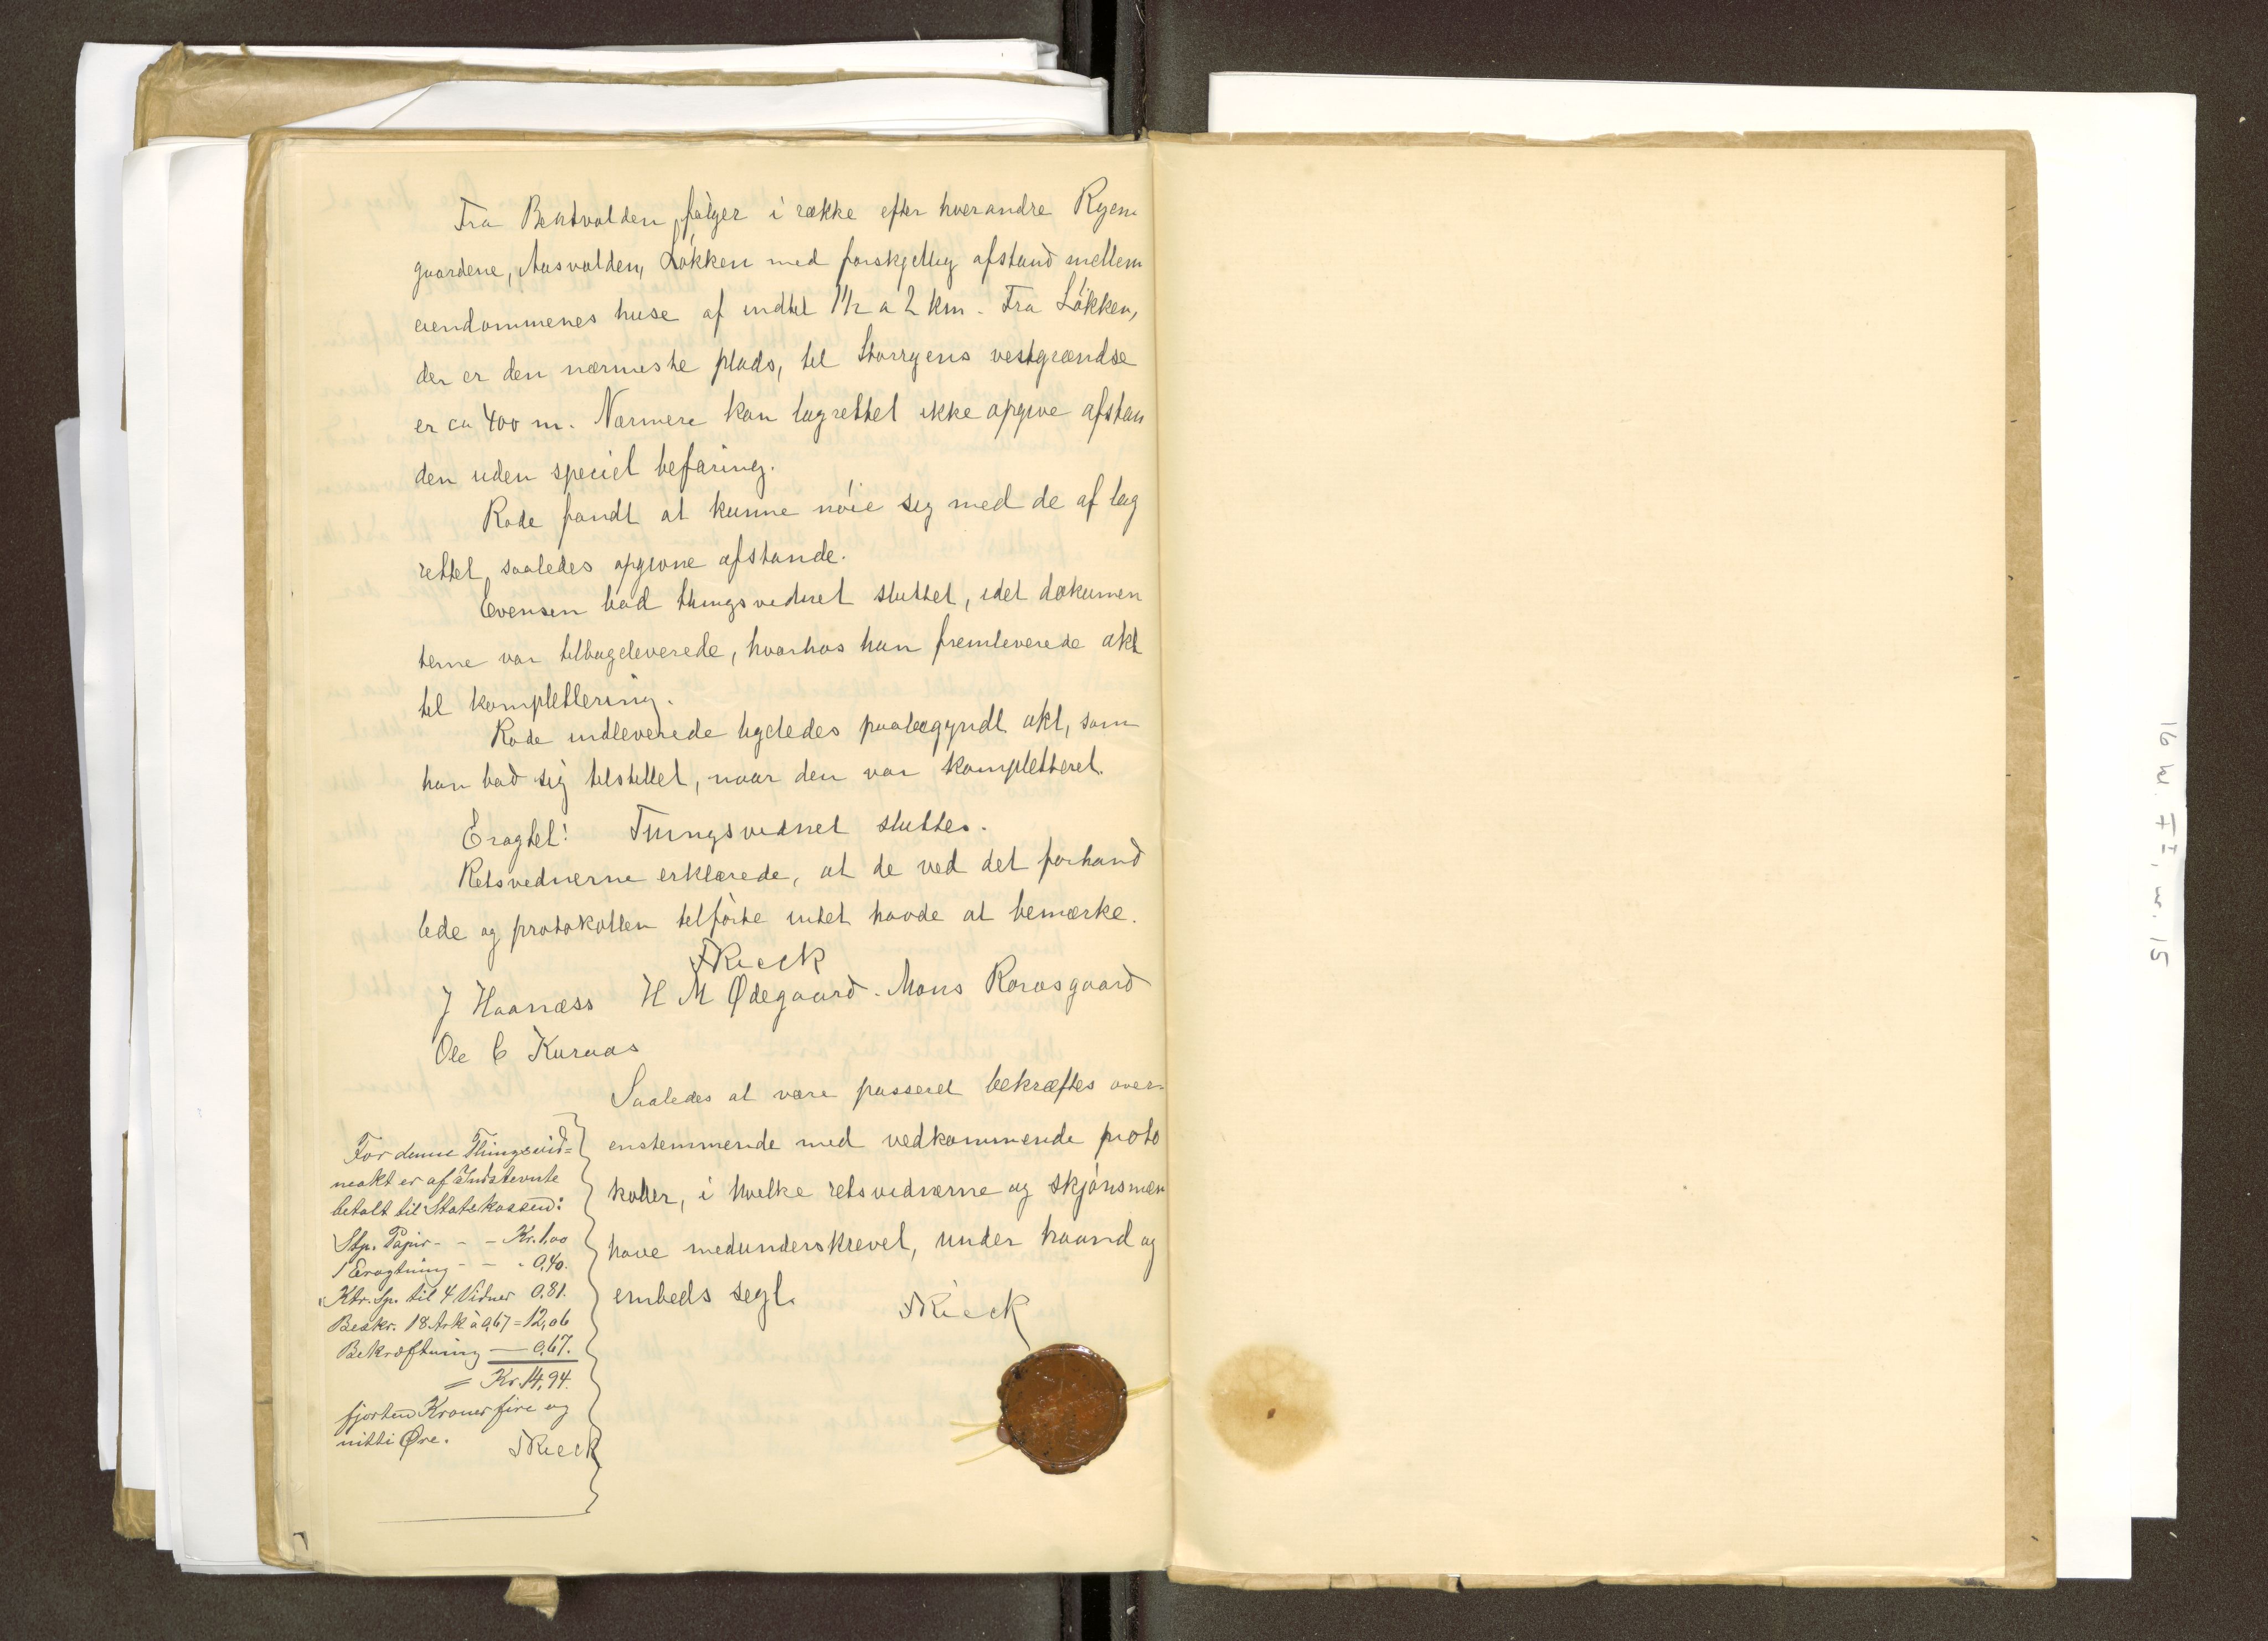 Fra Bentvolden følger i række efter hverandre Ryen
gaardene, Aasvolden, Løkken med forskjellig afstand mellem
eiendommenes huse af indtil 1½ a 2 km. Fra Løkken,
der er den nærmeste plads, til Storryens vestgrændse
er ca 400 m. Nærmere kan lagrettet ikke opgive afstan
den uden speciel befaring.
Rode fandt at kunne nøie sig med de af lag
rettet saaledes opgivne afstande.
Evensen bad thingsvidnet sluttet, idet dokumen
terne var tilbageleverede, hvorhos han fremleverede akt
til komplettering.
Rode indleverede ligeledes paabegyndt akt, som
han bad sig tilstillet, naar den var kompletteret.
Eragtet: Thingsvidnet sluttes.
Retsvidnerne erklærede, at de ved det forhand
lede og protokollen tilførte intet havde at bemærke.
Rieck
J Haanæss H M Ødegaard. Mons Rovosgaard
Ole C Kuraas
Saaledes at være passeret bekræftes over-
enstemmende med vedkommende proto
koller, i hvilke retsvidnerne og skjønsmæn
have medunderskrevet, under haand og
embeds segl.
Rieck
For denne Thingsvid=
neakt er af Indstevnte
betalt til Statskassen:
Stp. Papir - - - Kr. 1.00
1 Eragtning - - - 0,40.
Ktr. Sp. til 4 Vidner 0,81.
Beskr. 18 Ark à 0,67 = 12,06
Bekræftning — 0,67.
= Kr. 14,94.
fjorten Kroner fire og
nitti Øre.
Rieck
16 nr. 15